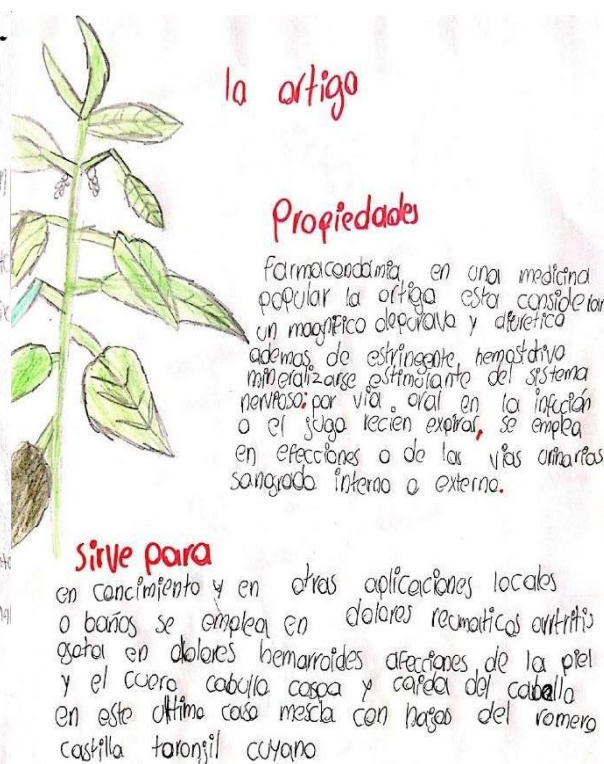 la ortiga
Propiedades
farmacondamia en una medicina
popular la ortiga esta considerar
un magnifico depurava y diuretica
ademas de estringente hemostativo
mineralizarse estimulante del sistema
nervioso; por via oral en la infución
o el jugo recien expirar, se emplea
en efecciones o de las vias urinarias
sangrado interno o externo.
Sirve para
en concimiento y en otras aplicaciones locales
o baños se emplea en dolores reomaticos artritis
en dolores hemarroides afecciones de la piel
y el cuero cabullo caspa y caida del cabello
en este ultimo caso mescla con hajas del romero
castilla toronjil cuyano